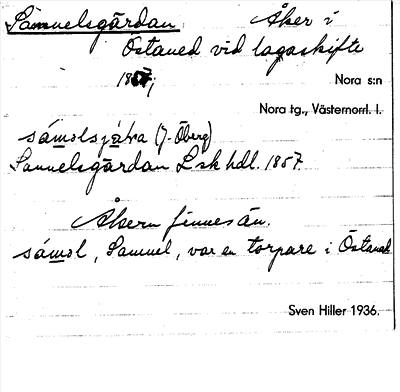 Samuelsgärdan Åker i
Östaned vid lagaskifte
1857; Nora s:n
Nora tg., Västernorrl. l.
sámo̲lsjáḷra (J. Öberg)
Samuelsgärdan Lsk hdl. 1857.
Åkern finnes än.
sámo̲l, Samuel, var en torpare i Östanek
Sven Hiller 1936.